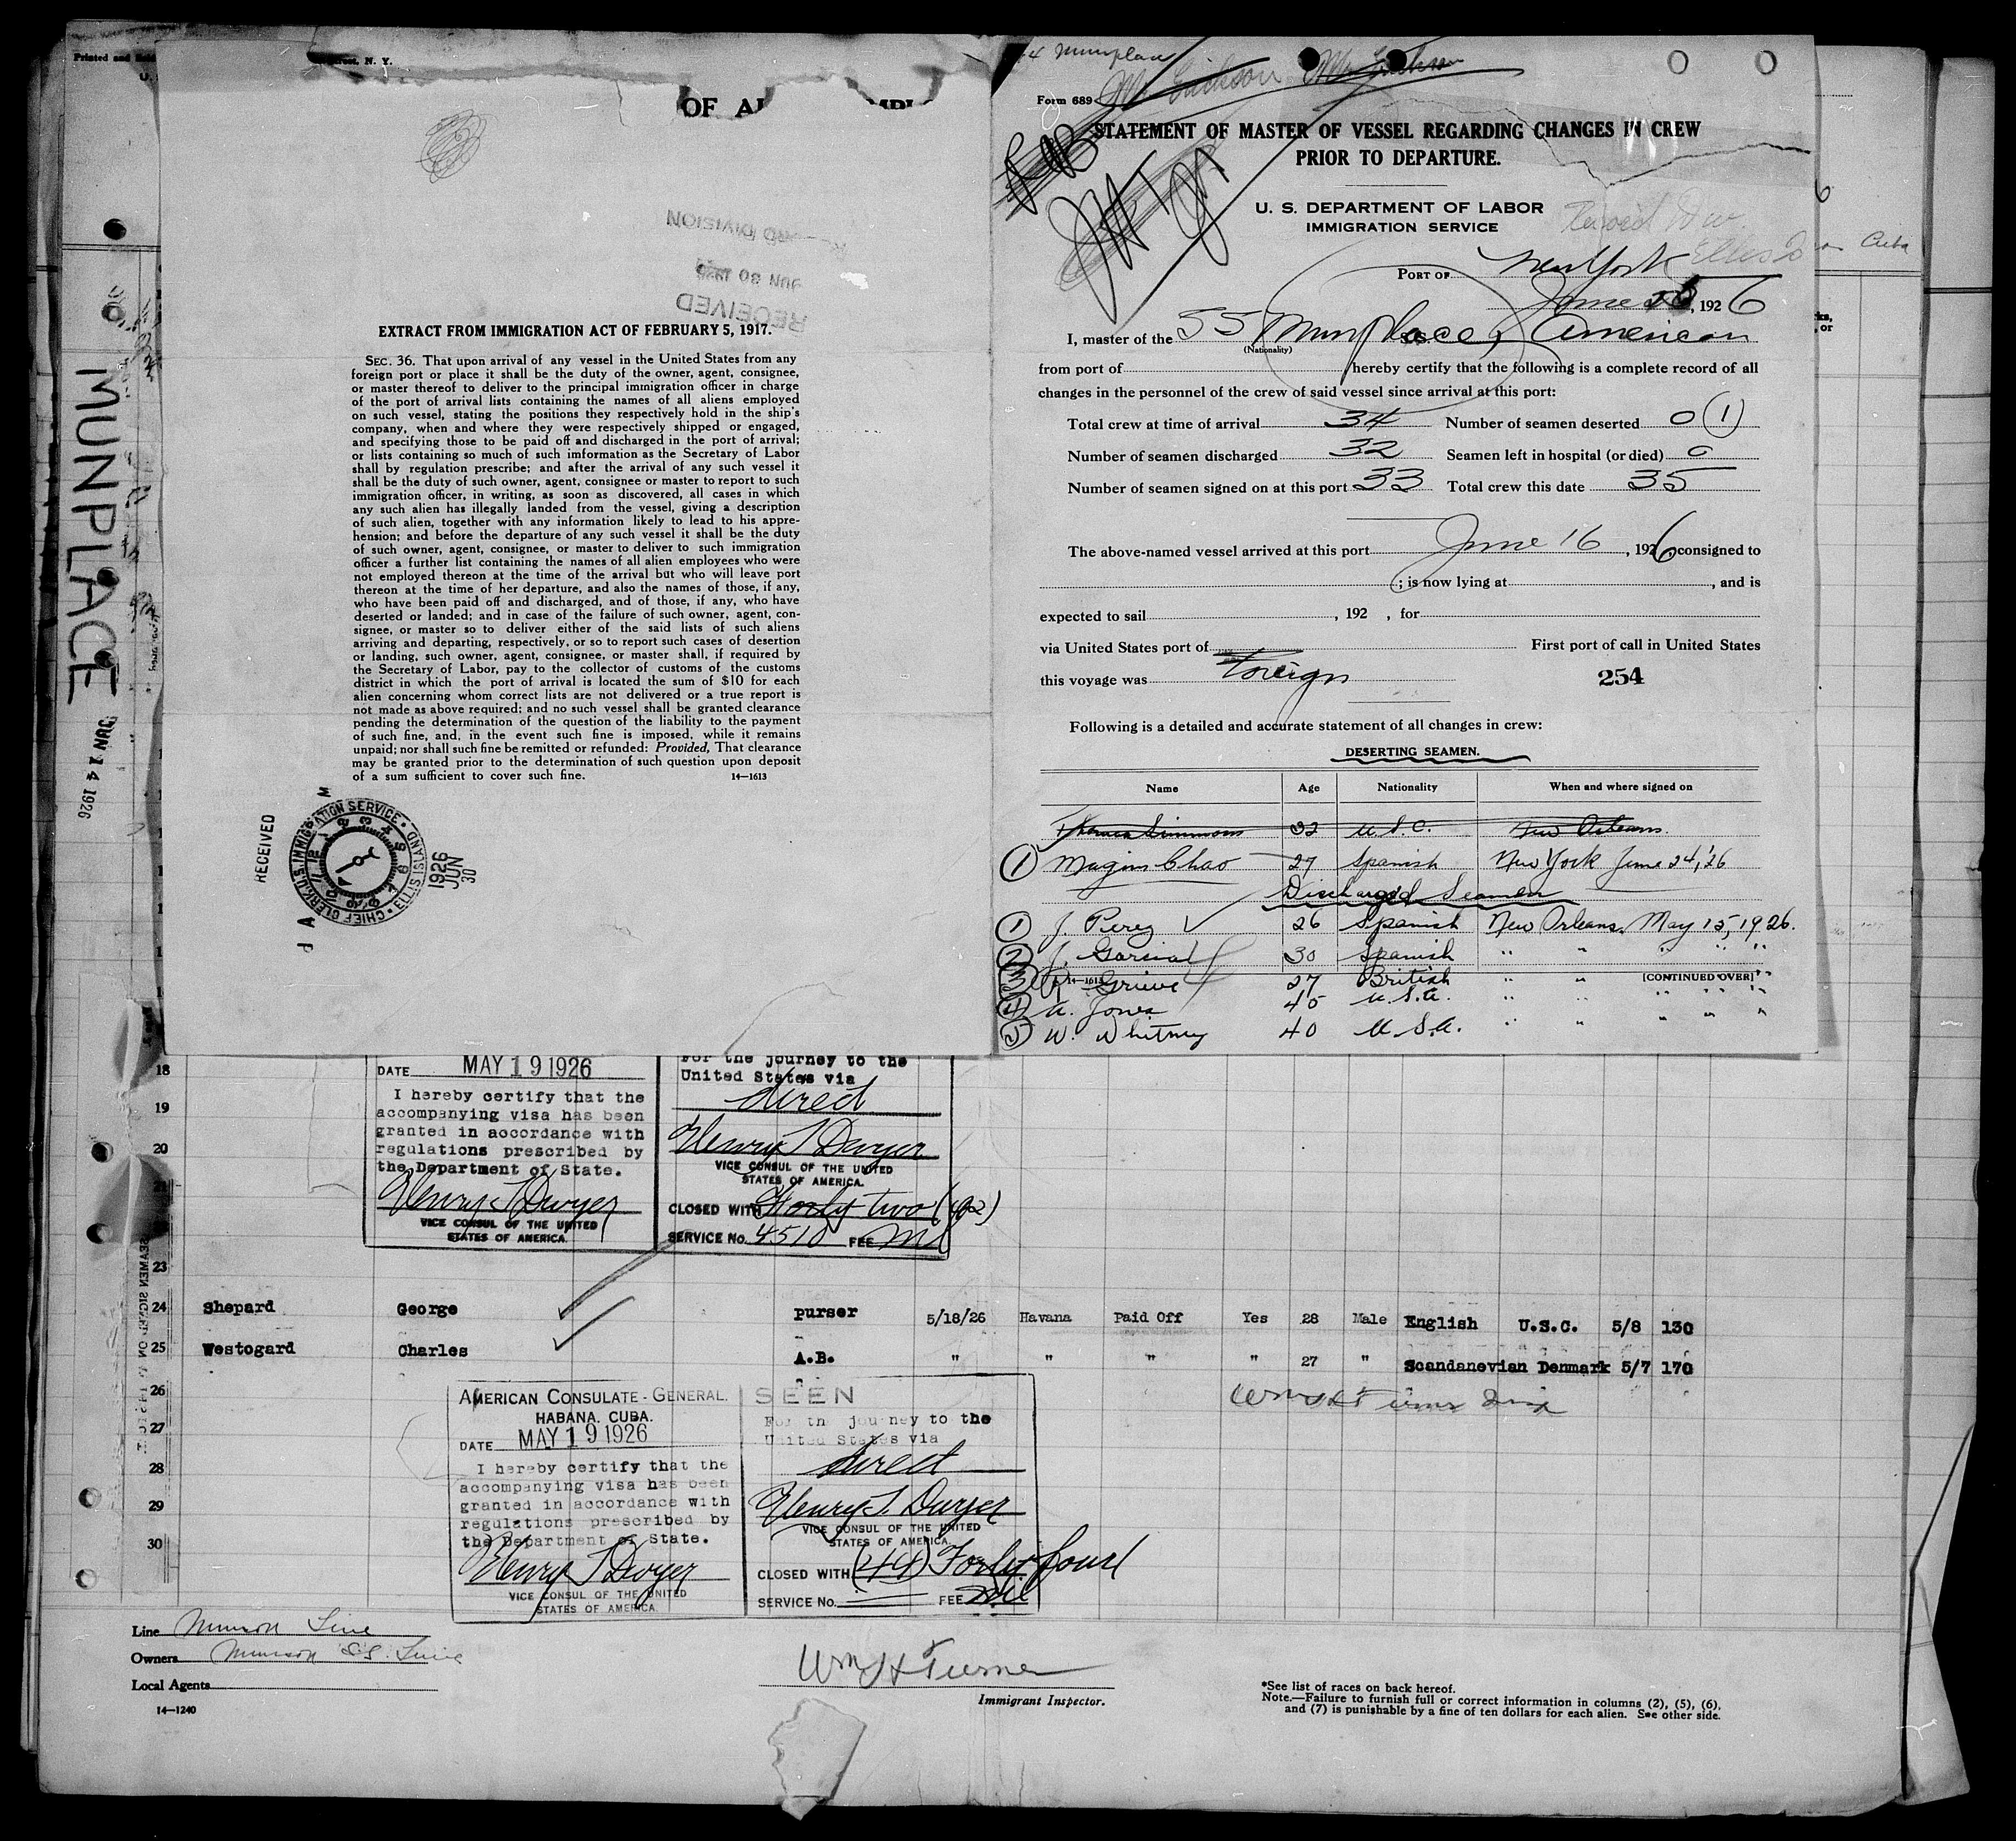 OF AL
EXTRACT FROM IMMIGRATION ACT OF FEBRUARY 5, 1917.
SEC. 36. That upon arrival of any vessel in the United States from any
foreign port or place it shall be the duty of the owner, agent, consignee,
or master thereof to deliver to the principal immigration officer in charge
of the port of arrival lists containing the names of all aliens employed
on such vessel, stating the positions they respectively hold in the ship's
company, when and where they were respectively shipped or engaged,
and specifying those to be paid off and discharged in the port of arrival;
or lists containing so much of such imformation as the Secretary of Labor
shall by regulation prescribe; and after the arrival of any such vessel it
shall be the duty of such owner, agent, consignee or master to report to such
immigration officer, in writing, as soon as discovered, all cases in which
any such alien has illegally landed from the vessel, giving a description
of such alien, together with any information likely to lead to his appre-
hension; and before the departure of any such vessel it shall be the duty
of such owner, agent, consignee, or master to deliver to such immigration
officer a further list containing the names of all alien employees who were
not employed thereon at the time of the arrival but who will leave port
thereon at the time of her departure, and also the names of those, if any,
who have been paid off and discharged, and of those, if any, who have
deserted or landed; and in case of the failure of such owner, agent, con-
signee, or master so to deliver either of the said lists of such aliens
arriving and departing, respectively, or so to report such cases of desertion
or landing, such owner, agent, consignee, or master shall, if required by
the Secretary of Labor, pay to the collector of customs of the customs
district in which the port of arrival is located the sum of $10 for each
alien concerning whom correct lists are not delivered or a true report is
not made as above required; and no such vessel shall be granted clearance
pending the determination of the question of the liability to the payment
of such fine, and, in the event such fine is imposed, while it remains
unpaid; nor shall such fine be remitted or refunded: Provided, That clearance
may be granted prior to the determination of such question upon deposit
of a sum sufficient to cover such fine. 14—1613
RECEIVED
JUN 30
DIVISION
RECEIVED
U.S. IMMIGRATION SERVICE · CHIEF CLERK · ELLIS ISLAND
1926 JUN 30
MUNPLACE
JAN 14 1926
Printed and
Street, N. Y.
Munplace
Mr Erickson
Form 689
STATEMENT OF MASTER OF VESSEL REGARDING CHANGES IN CREW
PRIOR TO DEPARTURE.
U. S. DEPARTMENT OF LABOR
IMMIGRATION SERVICE
PORT OF New York
June 26, 1926
I, master of the SS Munplace, American
(Nationality)
from port of hereby certify that the following is a complete record of all
changes in the personnel of the crew of said vessel since arrival at this port:
Total crew at time of arrival 34 Number of seamen deserted 0 (1)
Number of seamen discharged 32 Seamen left in hospital (or died) 0
Number of seamen signed on at this port 33 Total crew this date 35
The above-named vessel arrived at this port June 16, 1926, consigned to
; is now lying at , and is
expected to sail , 192 , for
via United States port of First port of call in United States
this voyage was Foreign 254
Following is a detailed and accurate statement of all changes in crew:
DESERTING SEAMEN.
Name Age Nationality When and where signed on
Thomas Simmons 32 U.S.C. New Orleans.
1 Magin Chao 27 Spanish New York June 24, '26
Discharged Seamen
1 J. Perez 26 Spanish New Orleans. May 15, 1926.
2 J. Garsial 30 Spanish " " " " "
3 R. Grieve 27 British " " " " "
14—1613 [CONTINUED OVER]
4 A. Jones 45 U.S.A. " " " " "
5 W. Whitney 40 U.S.A. " " " " "
Cuba
18
19
20
21
23
24
25
26
27
28
29
30
DATE MAY 19 1926
I hereby certify that the
accompanying visa has been
granted in accordance with
regulations prescribed by
the Department of State.
Henry T Dwyer
VICE CONSUL OF THE UNITED
STATES OF AMERICA.
For the journey to the
United States via
direct
Henry T Dwyer
VICE CONSUL OF THE UNITED
STATES OF AMERICA.
CLOSED WITH Forty two (42)
SERVICE No. 4510 FEE Nil
Shepard George purser 5/18/26 Havana Paid Off Yes 28 Male English U.S.C. 5/8 130
Westogard Charles A.B. " " " " 27 " Scandanevian Denmark 5/7 170
Wm H Turner Insp
AMERICAN CONSULATE-GENERAL.
HABANA. CUBA.
DATE MAY 19 1926
I hereby certify that the
accompanying visa has been
granted in accordance with
regulations prescribed by
the Department of State.
Henry T Dwyer
VICE CONSUL OF THE UNITED
STATES OF AMERICA.
SEEN
For the journey to the
United States via
direct
Henry T. Dwyer
VICE CONSUL OF THE UNITED
STATES OF AMERICA.
CLOSED WITH (44) Forty four
SERVICE No. FEE Nil
Line Munson Line
Owners Munson S.S. Line
Local Agents
14—1240
Wm H Turner
Immigrant Inspector.
*See list of races on back hereof.
Note.—Failure to furnish full or correct information in columns (2), (5), (6),
and (7) is punishable by a fine of ten dollars for each alien. See other side.